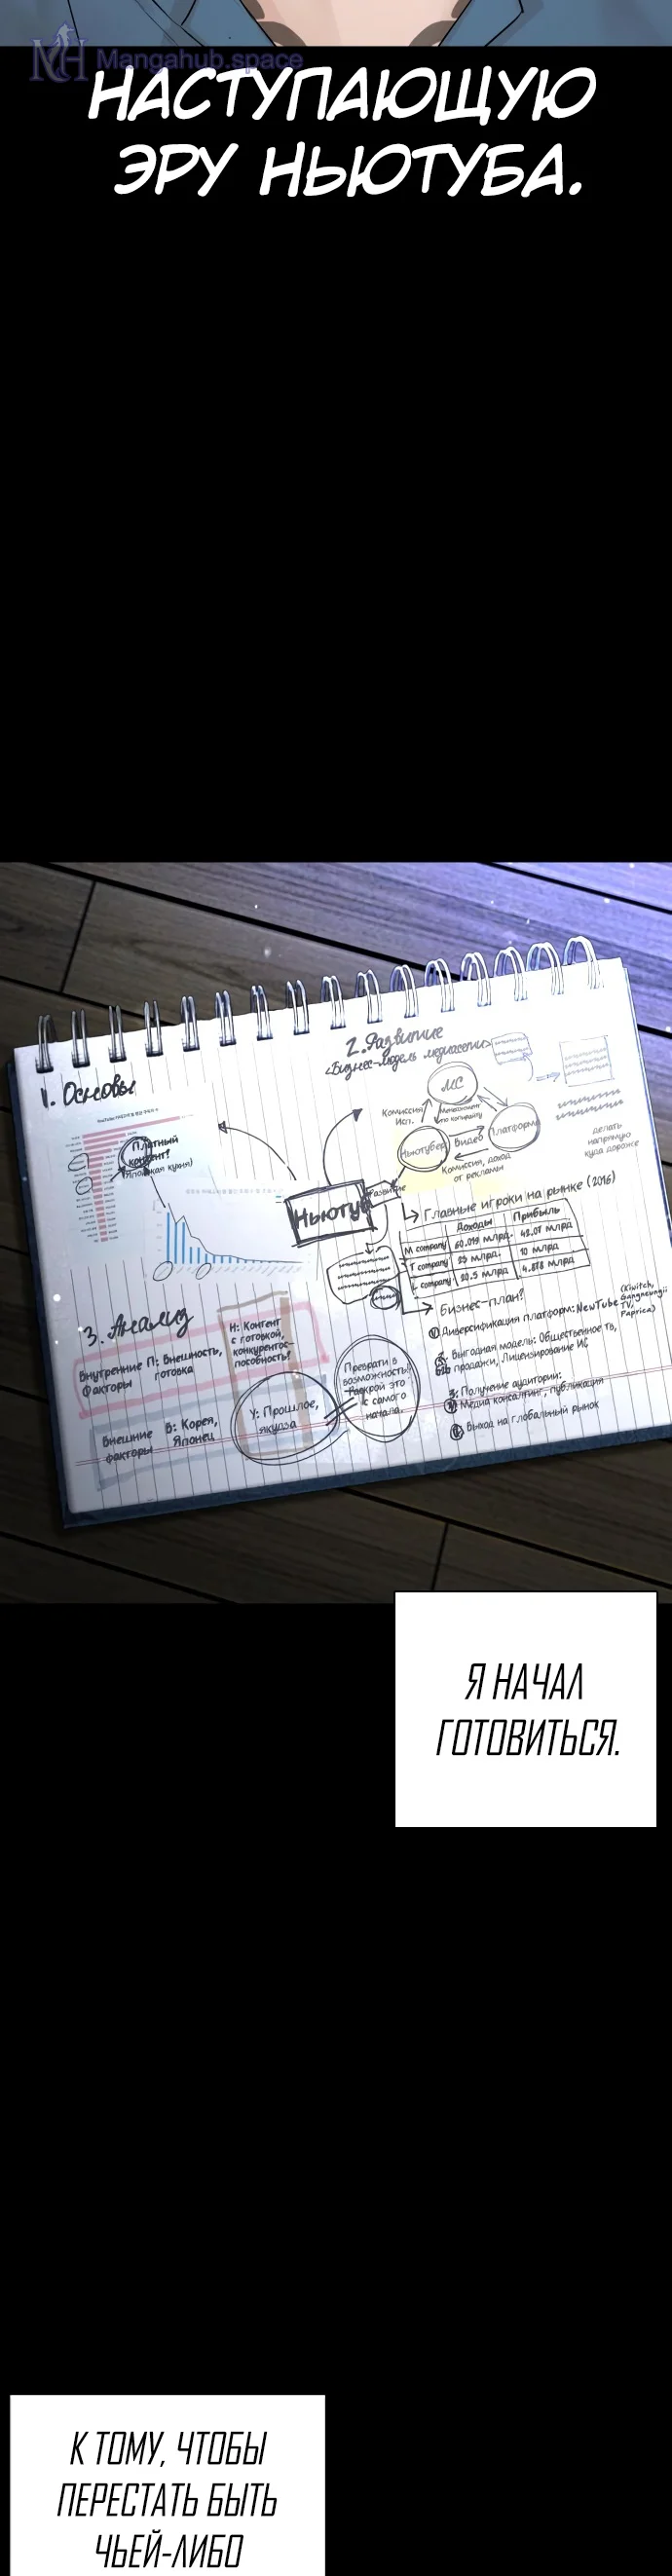 Mangahub.space
НАСТУПАЮЩУЮ
ЭРУ НЬЮТУБА.
1. Основы
Платный
контент?
(Японская кухня)
2. Развитие
<Бизнес-модель медиасети>
МС
Комиссия
Исп.
Менеджмент
Ньютубер
Видео
Платформа
Комиссия, доход
от рекламы
делать
напрямую
куда дороже
Ньютуб
Развитие
Главные игроки на рынке (2016)
Доходы
Прибыль
M company
60.019 млрд.
42.07 млрд
T company
55 млрд.
10 млрд
L company
20.5 млрд
4.878 млрд
Бизнес-план?
① Диверсификация платформ: NewTube (Kiwitch,
Gangnewagii
TV,
Paprica)
Выгодная модель: Общественное тв,
продажи, Лицензирование ИС
3: Получение аудитории:
Медиа консалтинг, публикация
Выход на глобальный рынок
3. Анализ
Внутренние
Факторы
П: Внешность,
готовка
Н: Контент
с готовкой,
конкурентос-
пособность?
Внешние
факторы
В: Корея,
Японец
У: Прошлое,
якудза
Преврати в
возможность!
Раскрой это
с самого
начала.
Я НАЧАЛ
ГОТОВИТЬСЯ.
К ТОМУ, ЧТОБЫ
ПЕРЕСТАТЬ БЫТЬ
ЧЬЕЙ-ЛИБО